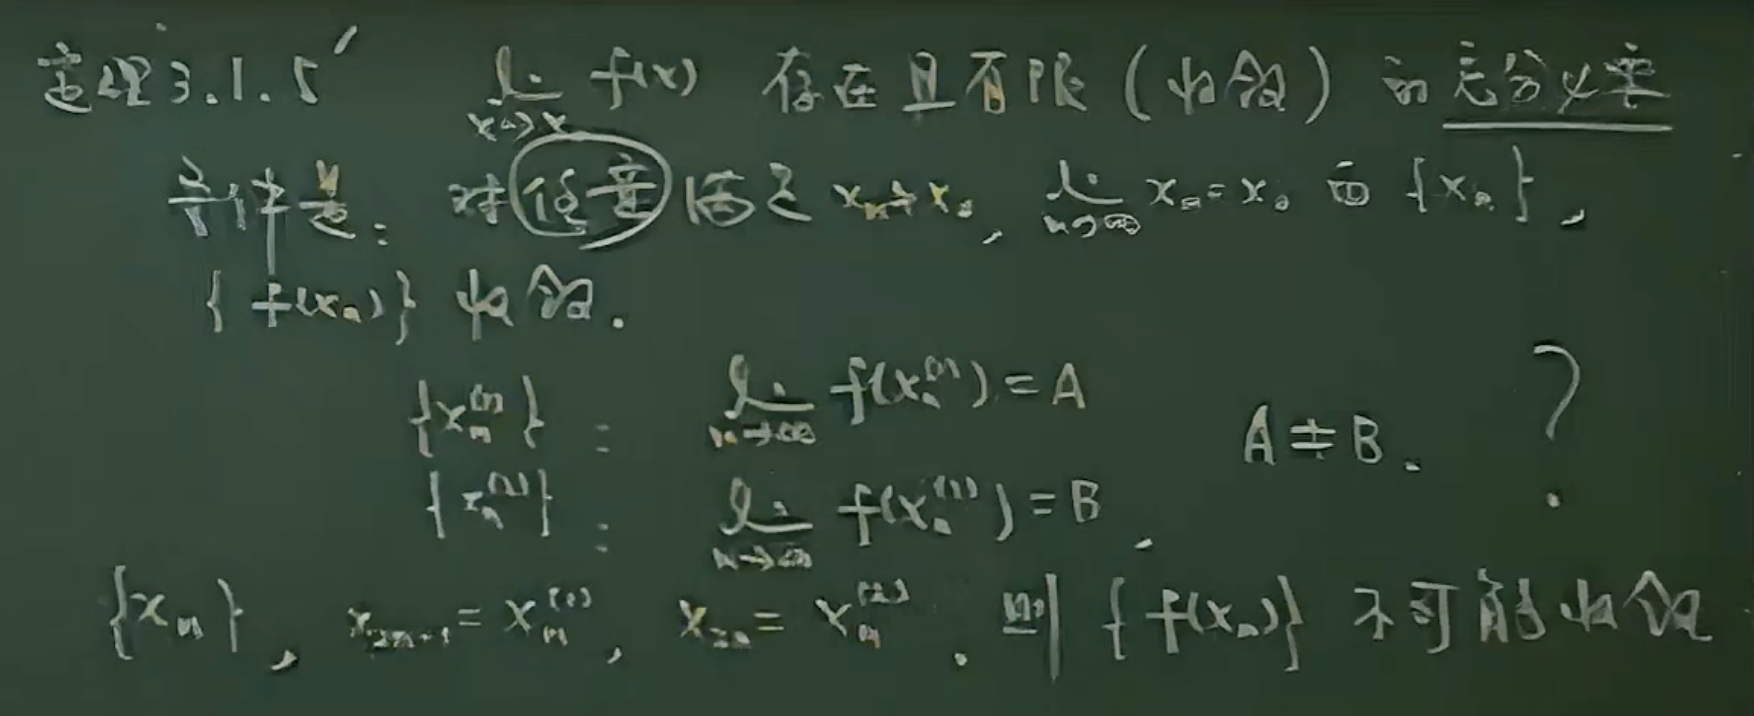 定理3.1.5′ lim f(x) 存在且有限(收敛)的充分必要
x→x₀
条件是: 对任意满足 xₙ≠x₀, lim xₙ=x₀ 的 {xₙ},
n→∞
{f(xₙ)} 收敛.
{xₙ⁽¹⁾}: lim f(xₙ⁽¹⁾)=A
n→∞
A≠B. ?
{xₙ⁽²⁾}: lim f(xₙ⁽²⁾)=B.
n→∞
{xₙ}, x₂ₙ₊₁=xₙ⁽¹⁾, x₂ₙ=xₙ⁽²⁾. 则{f(xₙ)}不可能收敛